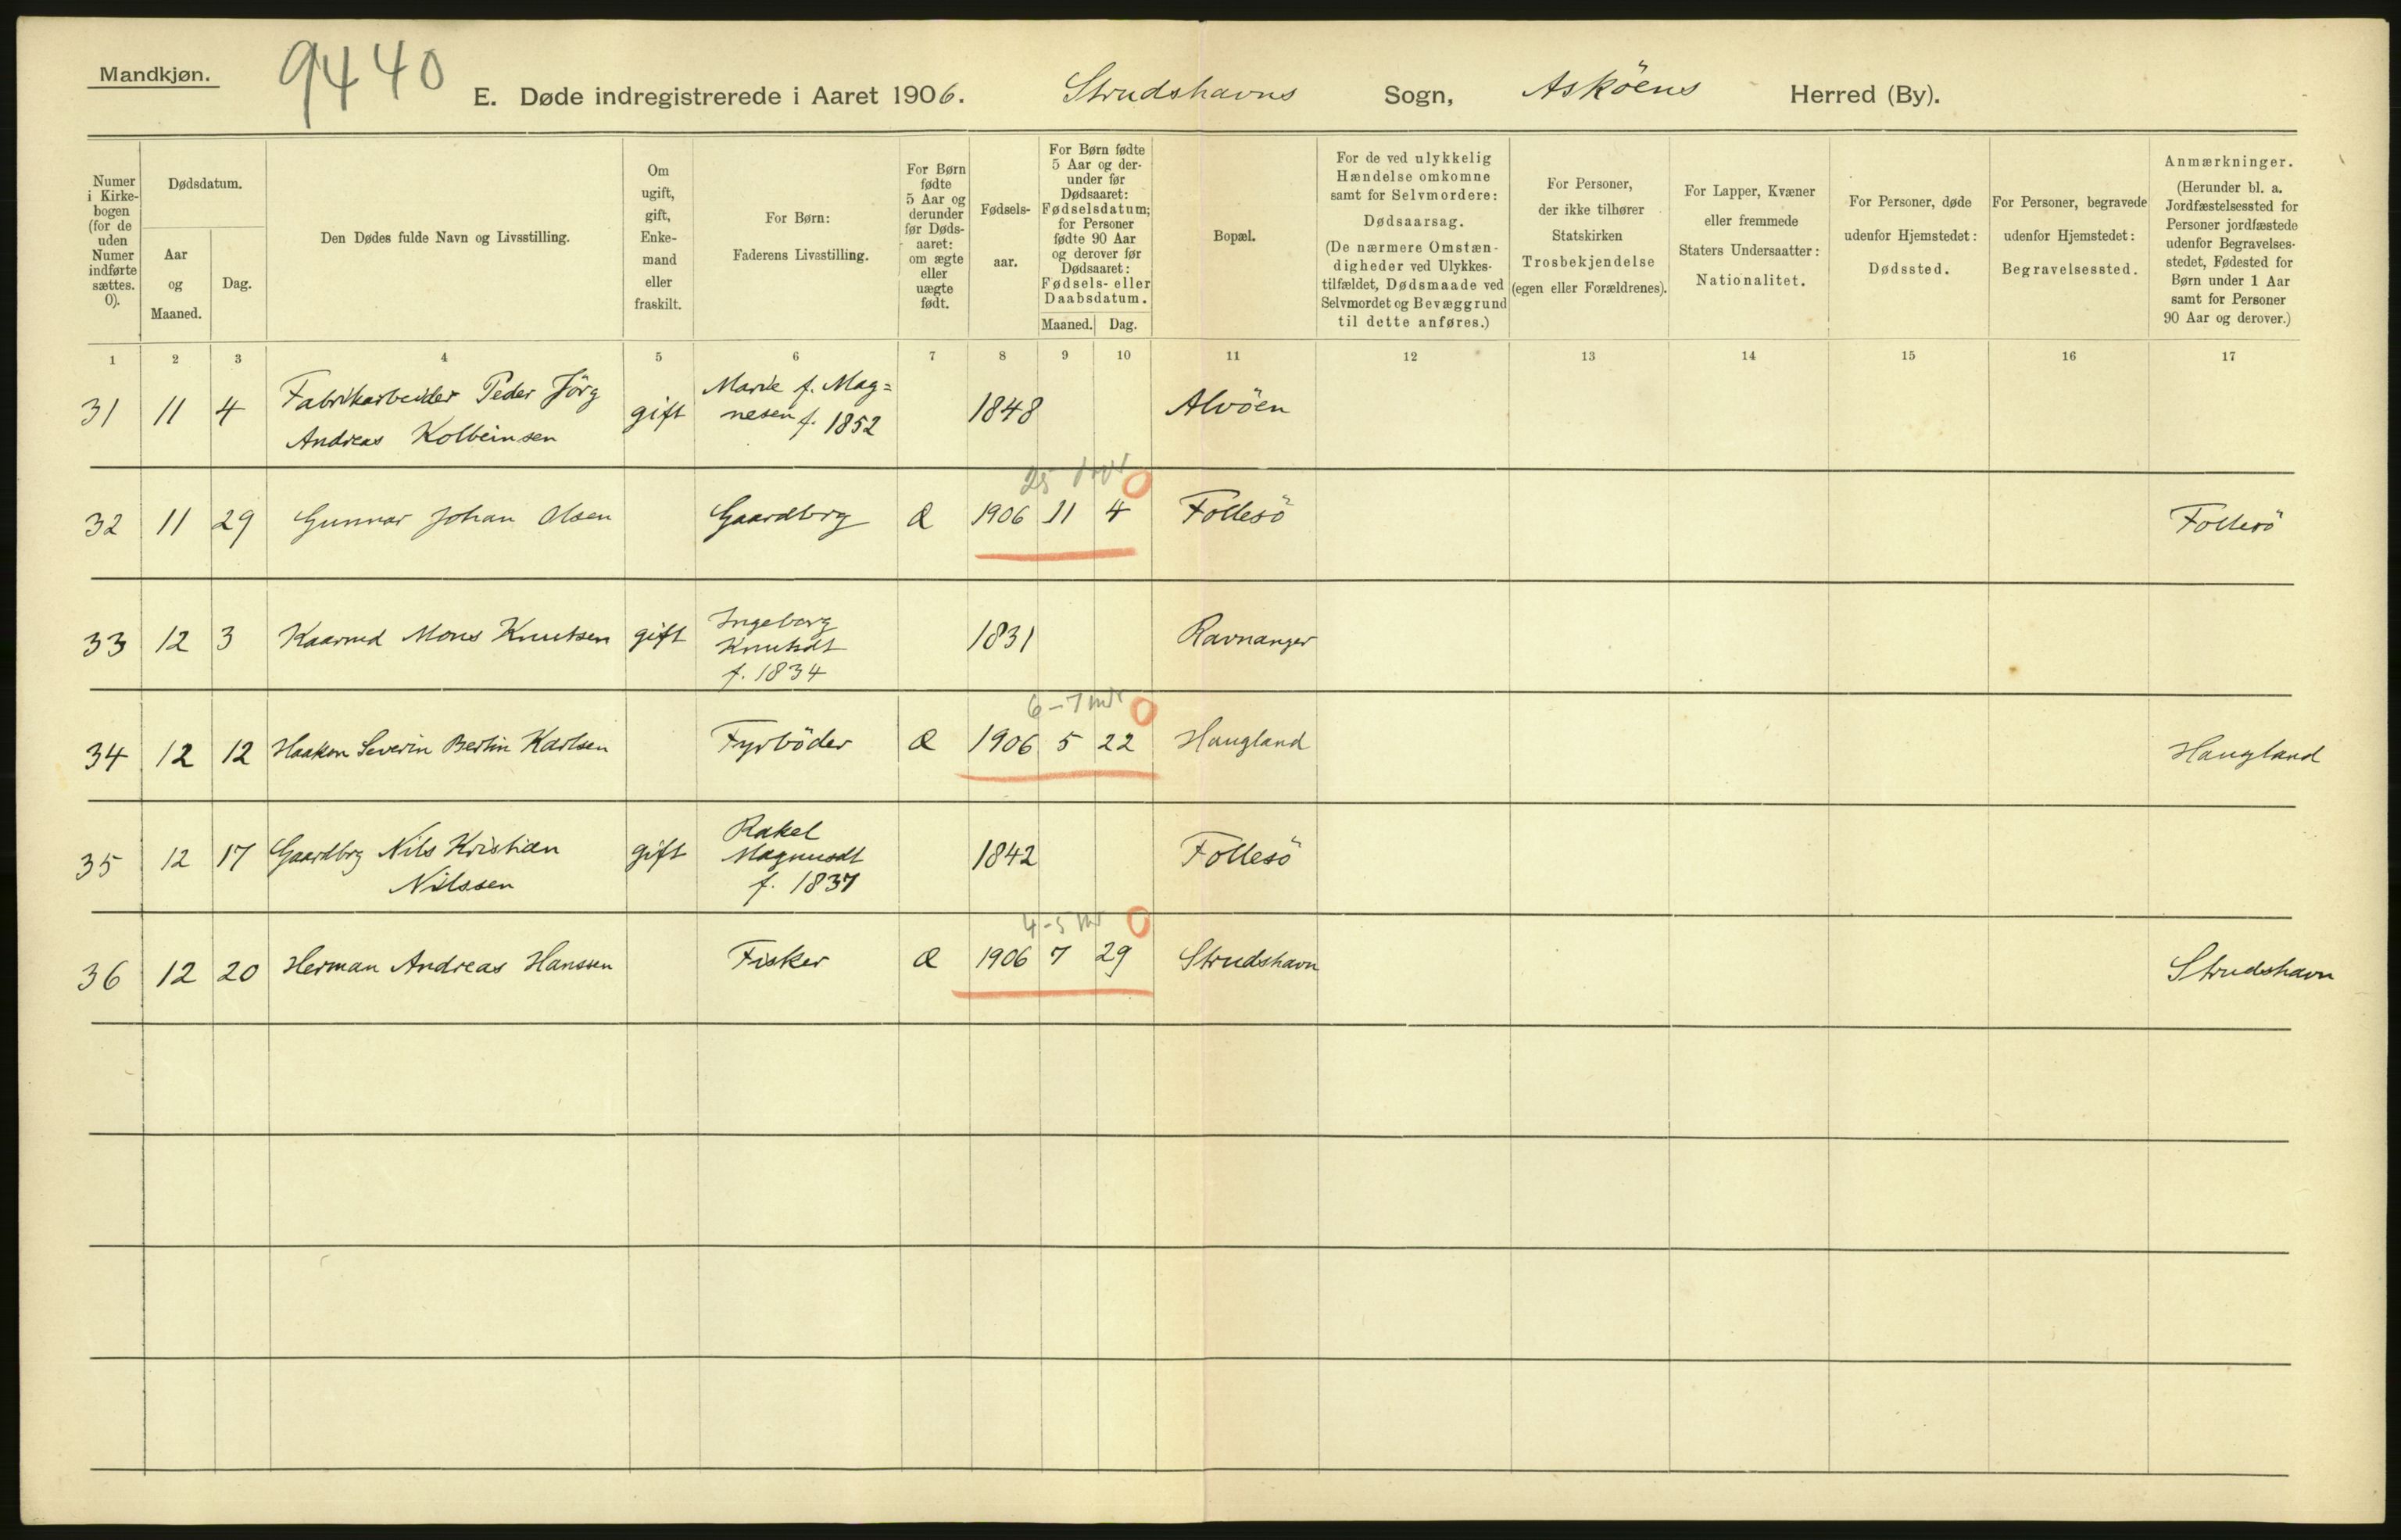 Mandkjøn.
9440
E. Døde indregistrerede i Aaret 1906. Strudshavns Sogn, Asköens Herred (By).
Numer i Kirkebogen (for de uden Numer indførte sættes. 0).
Dødsdatum.
Aar og Maaned.
Dag.
Den Dødes fulde Navn og Livsstilling.
Om ugift, gift, Enkemand eller fraskilt.
For Børn: Faderens Livsstilling.
For Børn fødte 5 Aar og derunder før Dødsaaret: om ægte eller uægte født.
Fødselsaar.
For Børn fødte 5 Aar og derunder før Dødsaaret: Fødselsdatum; for Personer fødte 90 Aar og derover før Dødsaaret: Fødsels- eller Daabsdatum.
Maaned. Dag.
Bopæl.
For de ved ulykkelig Hændelse omkomne samt for Selvmordere: Dødsaarsag. (De nærmere Omstændigheder ved Ulykkestilfældet, Dødsmaade ved Selvmordet og Bevæggrund til dette anføres.)
For Personer, der ikke tilhører Statskirken Trosbekjendelse (egen eller Forældrenes).
For Lapper, Kvæner eller fremmede Staters Undersaatter: Nationalitet.
For Personer, døde udenfor Hjemstedet: Dødssted.
For Personer, begravede udenfor Hjemstedet: Begravelsessted.
Anmærkninger. (Herunder bl. a. Jordfæstelsessted for Personer jordfæstede udenfor Begravelsesstedet, Fødested for Børn under 1 Aar samt for Personer 90 Aar og derover.)
1 2 3 4 5 6 7 8 9 10 11 12 13 14 15 16 17
31 11 4 Fabrikarbeider Peder Jörg Andreas Kolbeinsen gift Marie f. Magnesen f. 1852 1848 Alvöen
25
32 11 29 Gunnar Johan Olsen Gaardbrg Æ 1906 11 4 Follesö Follesö
33 12 3 Kaarmd Mons Knutsen gift Ingeborg Knutsdt f. 1834 1831 Ravnanger
6-7 mdr
34 12 12 Haakon Severin Bertin Karlsen Fyrböder Æ 1906 5 22 Haugland Haugland
35 12 17 Gaardbrg Nils Kristian Nilssen gift Rakel Magnusdt f. 1837 1842 Follesö
4-5 mr
36 12 20 Herman Andreas Hanssen Fisker Æ 1906 7 29 Strudshavn Strudshavn